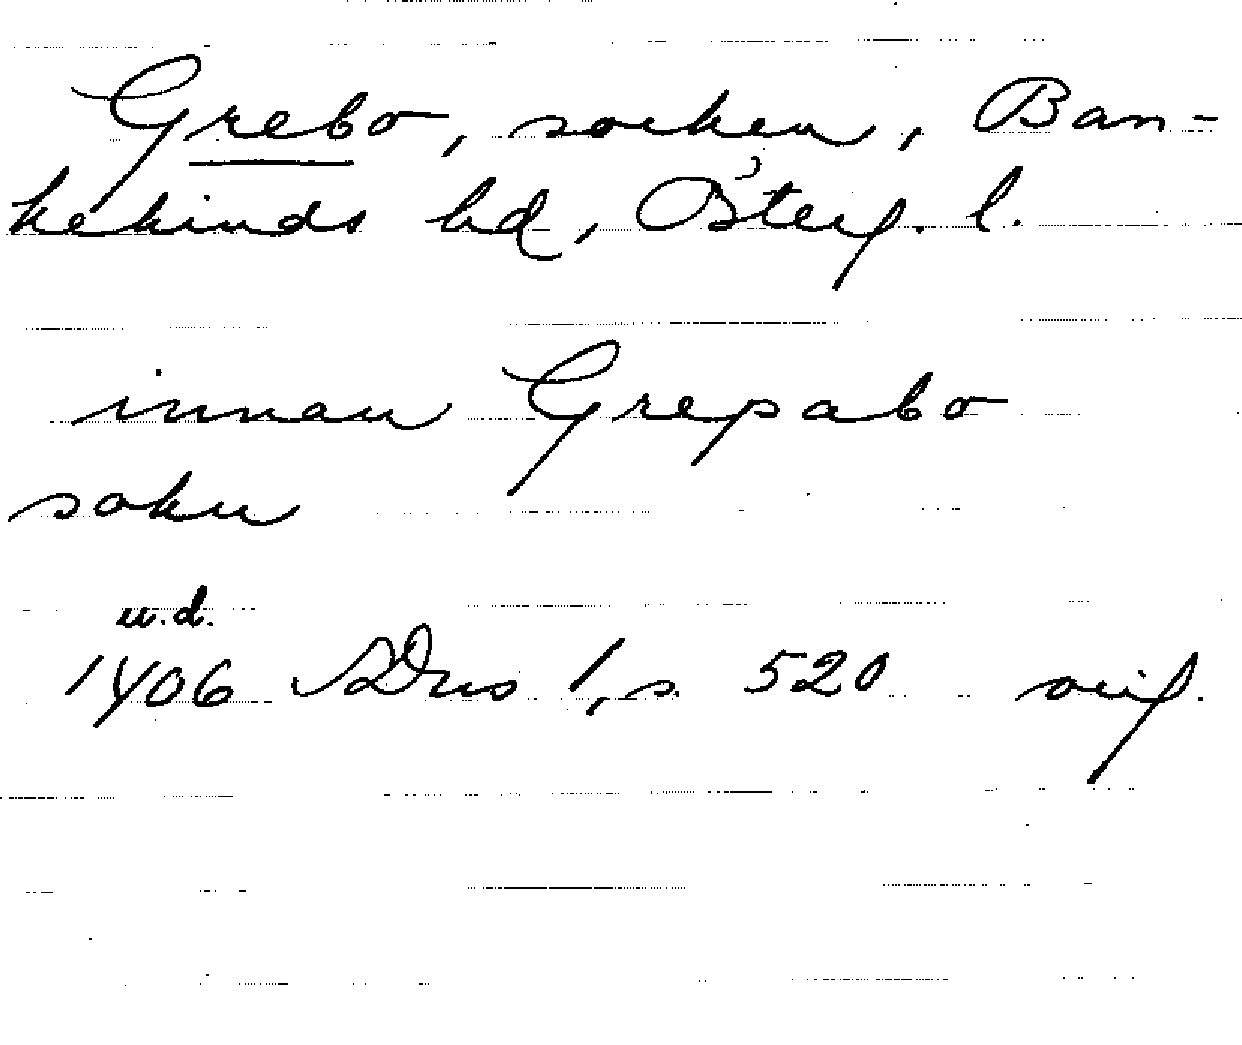 Grebo, socken, Ban-
kekinds hd, Österg. l.
innan Grepabo
sokn
u.d.
1406 SDns 1, s. 520 orig.